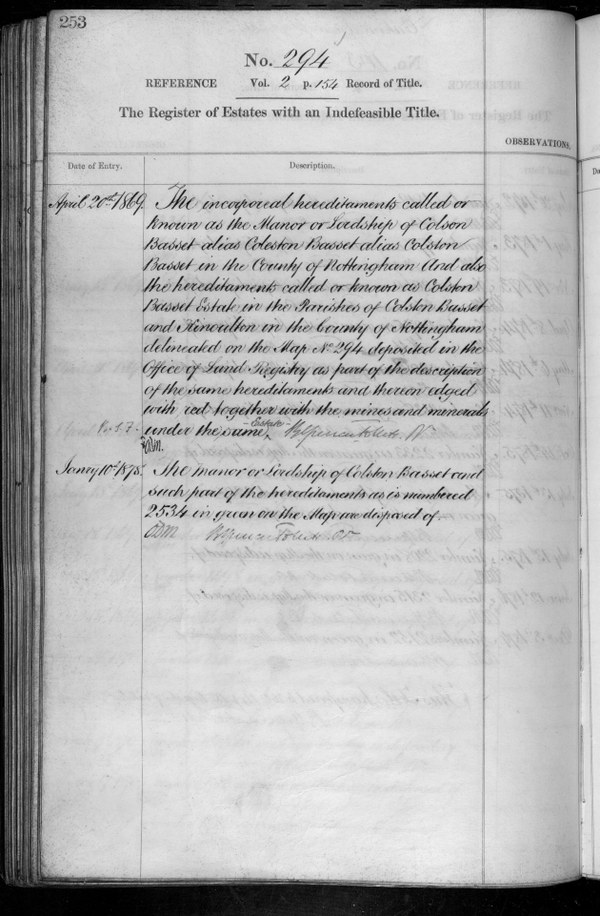 253
No. 294
REFERENCE Vol. 2 p. 154 Record of Title.
The Register of Estates with an Indefeasible Title.
OBSERVATIONS.
Date of Entry. Description.
April 20th 1869. The incorporeal hereditaments called or
known as the Manor or Lordship of Colson
Basset alias Coleston Basset alias Colston
Basset in the County of Nottingham And also
the hereditaments called or known as Colston
Basset Estate in the Parishes of Colston Basset
and Kinoulton in the County of Nottingham
delineated on the Map No 294 deposited in the
Office of Land Registry as part of the description
of the same hereditaments and thereon edged
with red together with the mines and minerals
under the same
Estate
Janry 10th 1875. The manor or Lordship of Colston Basset and
such part of the hereditaments as is numbered
2534 in green on the Map are disposed of.